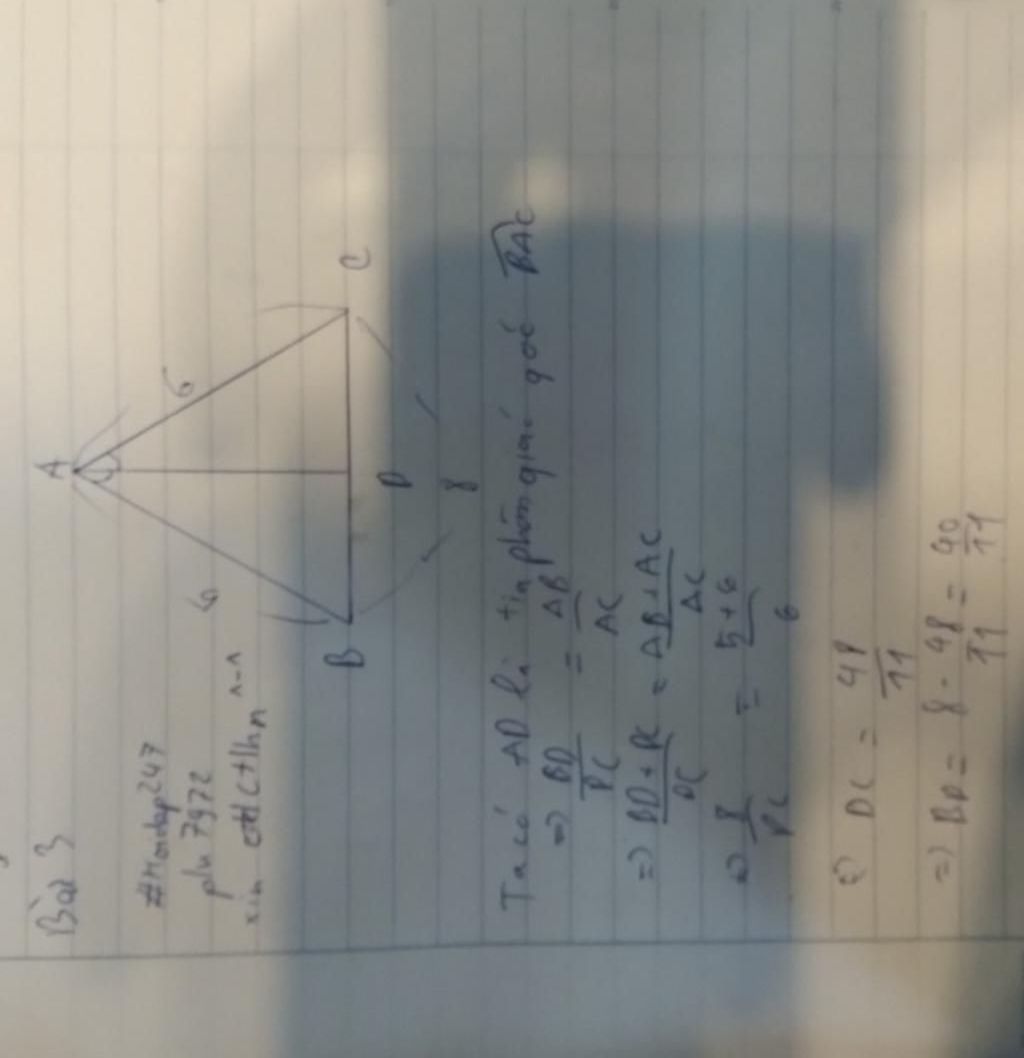 Bài 3
#Hoidap247
plu7972
xin ctlHctlhn ^-^
A
6
B
C
D
8
Ta có AD là tia phân giác góc BAC
=> BD/DC = AB/AC
=> BD + DC/DC = AB + AC/AC
=> 8/DC = 5+6/6
=> DC = 48/11
=> BD = 8 - 48/11 = 40/11